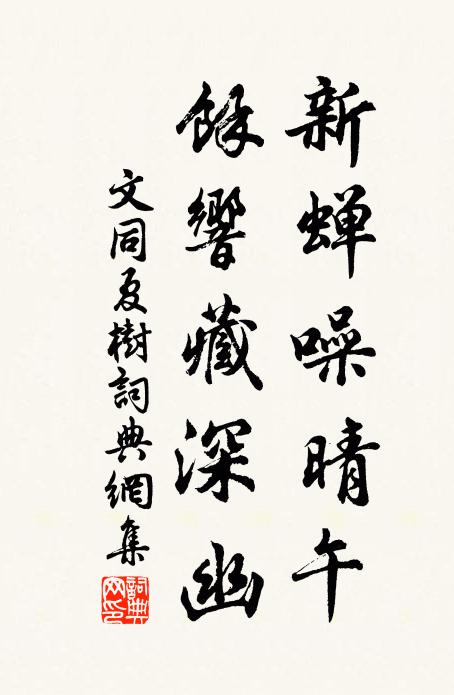 新蝉噪晴午
餘響藏深幽
文同夏樹詞典網集
詞典網印